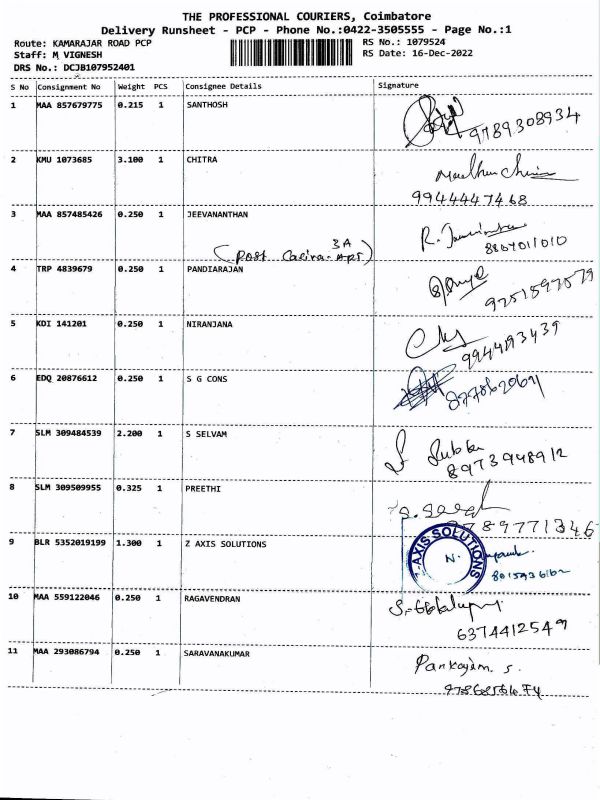 THE PROFESSIONAL COURIERS, Coimbatore
Delivery Runsheet - PCP - Phone No.:0422-3505555 - Page No.:1
Route: KAMARAJAR ROAD PCP
RS No.: 1079524
Staff: M VIGNESH
RS Date: 16-Dec-2022
DRS No.: DCJB107952401
S No Consignment No Weight PCS Consignee Details Signature
1 MAA 857679775 0.215 1 SANTHOSH
9789308934
2 KMU 1073685 3.100 1 CHITRA
9944447468
3 MAA 857485426 0.250 1 JEEVANANTHAN
R.
8867011010
3A
(Post
4 TRP 4839679 0.250 1 PANDIARAJAN
9751597579
5 KDI 141201 0.250 1 NIRANJANA
9944193439
6 EDQ 20876612 0.250 1 S G CONS
7 SLM 309484539 2.200 1 S SELVAM
8973948912
8 SLM 309509955 0.325 1 PREETHI
9789771346
9 BLR 5352019199 1.300 1 Z AXIS SOLUTIONS
Z-AXIS SOLUTIONS
N.
10 MAA 559122046 0.250 1 RAGAVENDRAN
6374412549
11 MAA 293086794 0.250 1 SARAVANAKUMAR
Pankajam s.